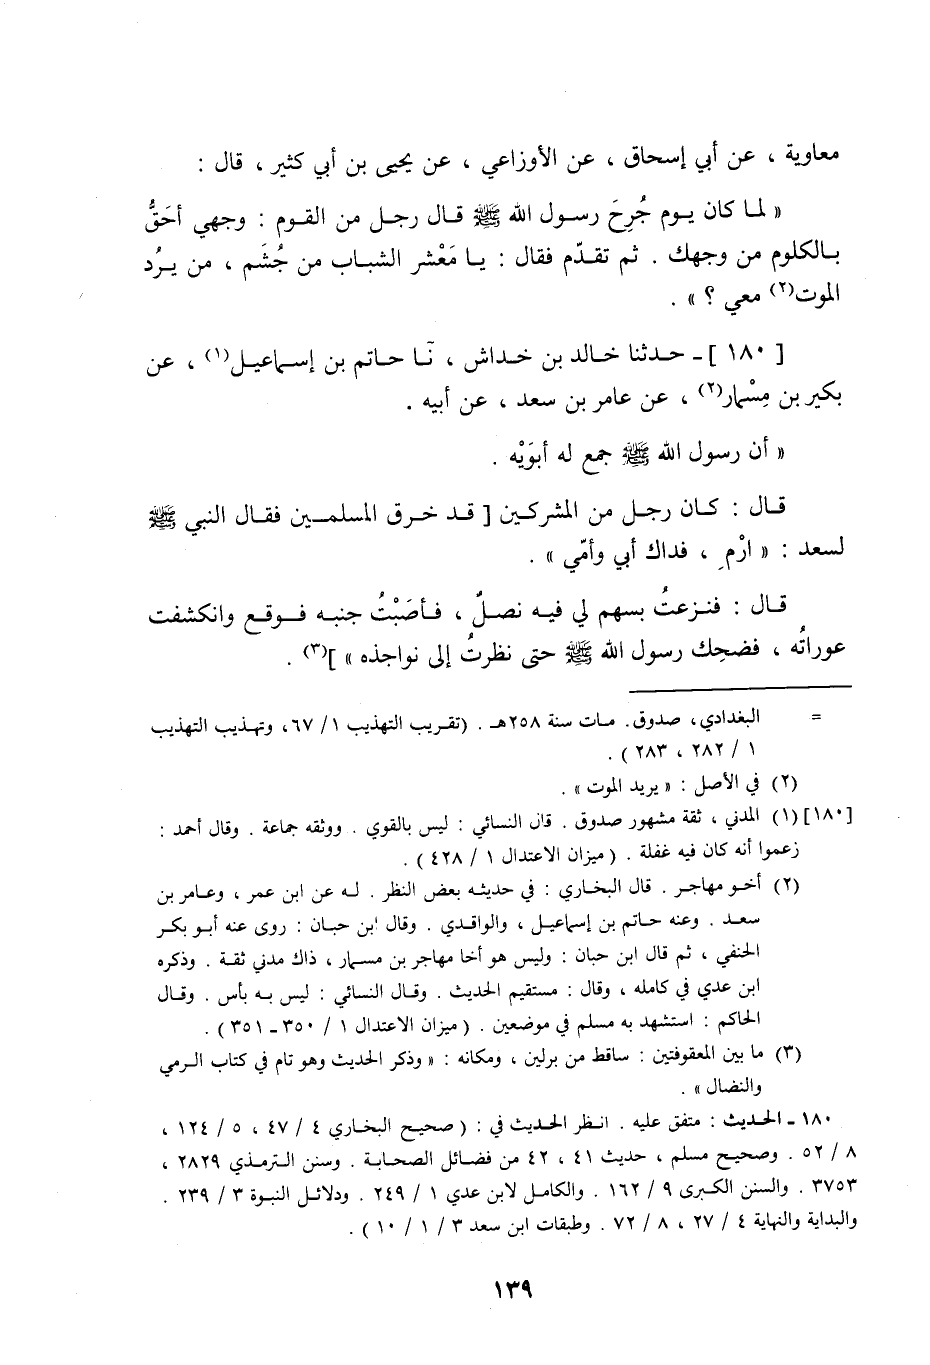 معاوية ، عن أبي إسحاق ، عن الأوزاعي ، عن يحيى بن أبي كثير ، قال :
« لما كان يوم جُرِحَ رسول الله ﷺ قال رجل من القوم : وجهي أحَقُّ
بالكلوم من وجهك . ثم تقدّم فقال : يا مَعْشر الشباب من جُشَم ، من يرُد
الموت(٢) معي ؟ » .
[ ١٨٠ ] ـ حدثنا خالد بن خداش ، نَا حاتم بن إسماعيل(١) ، عن
بكير بن مِسْمار(٢) ، عن عامر بن سعد ، عن أبيه .
« أن رسول الله ﷺ جمع له أبوَيْه .
قال : كان رجل من المشركين [ قد خرق المسلمين فقال النبي ﷺ
لسعد : « ارْمِ ، فداك أبي وأمّي » .
قال : فنزعتُ بسهم لي فيه نصلٌ ، فأصَبْتُ جنبه فوقع وانكشفت
عوراتُه ، فضحِك رسول الله ﷺ حتى نظرتُ إلى نواجذه » ](٣) .
= البغدادي، صدوق. مات سنة ٢٥٨هـ . (تقريب التهذيب ١ / ٦٧، وتهذيب التهذيب
١ / ٢٨٢ ، ٢٨٣ ) .
(٢) في الأصل : « يريد الموت » .
[١٨٠](١) المدني ، ثقة مشهور صدوق . قال النسائي : ليس بالقوي . ووثقه جماعة . وقال أحمد :
زعموا أنه كان فيه غفلة . ( ميزان الاعتدال ١ / ٤٢٨ ) .
(٢) أخو مهاجر . قال البخاري : في حديثه بعض النظر . له عن ابن عمر ، وعامر بن
سعد . وعنه حاتم بن إسماعيل ، والواقدي . وقال ابن حبان : روى عنه أبو بكر
الحنفي ، ثم قال ابن حبان : وليس هو أخا مهاجر بن مسمار ، ذاك مدني ثقة . وذكره
ابن عدي في كامله ، وقال : مستقيم الحديث . وقال النسائي : ليس به بأس . وقال
الحاكم : استشهد به مسلم في موضعين . ( ميزان الاعتدال ١ / ٣٥٠ ـ ٣٥١ ) .
(٣) ما بين المعقوفتين : ساقط من برلين ، ومكانه : « وذكر الحديث وهو تام في كتاب الرمي
والنضال » .
١٨٠ ـ الحديث : متفق عليه . انظر الحديث في : ( صحيح البخاري ٤ / ٤٧ ، ٥ / ١٢٤ ،
٨ / ٥٢ . وصحيح مسلم ، حديث ٤١ ، ٤٢ من فضائل الصحابة . وسنن الترمذي ٢٨٢٩ ،
٣٧٥٣ . والسنن الكبرى ٩ / ١٦٢ . والكامل لابن عدي ١ / ٢٤٩ . ودلائل النبوة ٣ / ٢٣٩ .
والبداية والنهاية ٤ / ٢٧ ، ٨ / ٧٢ . وطبقات ابن سعد ٣ / ١ / ١٠ ) .
١٣٩